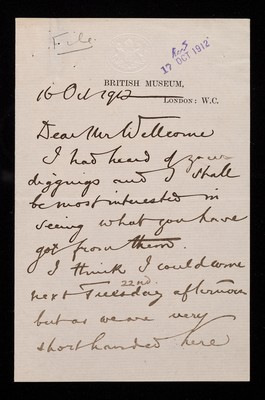 File
Recd
17 OCT 1912
BRITISH MUSEUM,
16 Oct 1912
LONDON: W.C.
Dear Mr Wellcome
I had heard of your
diggings and I shall
be most interested in
seeing what you have
got from them.
I think I could come
22nd.
next Tuesday afternoon
but as we are very
shorthanded here